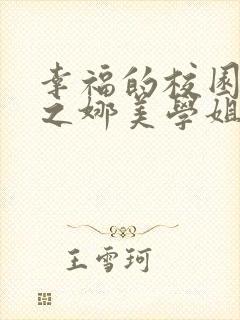 幸福的校園
之娜美學姐
王雪珂